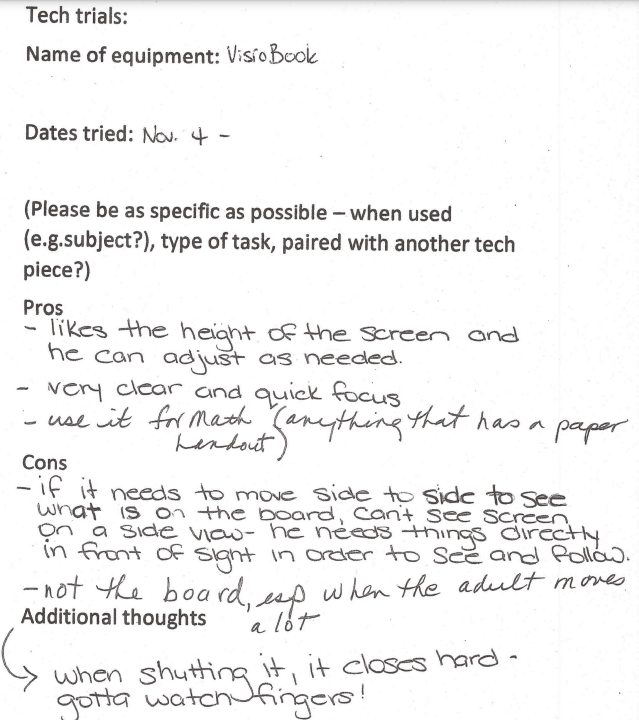 Tech trials:
Name of equipment: VisioBook
Dates tried: Nov. 4 -
(Please be as specific as possible – when used
(e.g.subject?), type of task, paired with another tech
piece?)
Pros
- likes the height of the screen and
he can adjust as needed.
- very clear and quick focus
- use it for Math (anything that has a paper
handout)
Cons
- if it needs to move side to side to see
what is on the board, can't see screen
on a side view- he needs things directly
in front of sight in order to see and follow.
- not the board, esp when the adult moves
a lot
Additional thoughts
when shutting it, it closes hard -
gotta watch fingers!